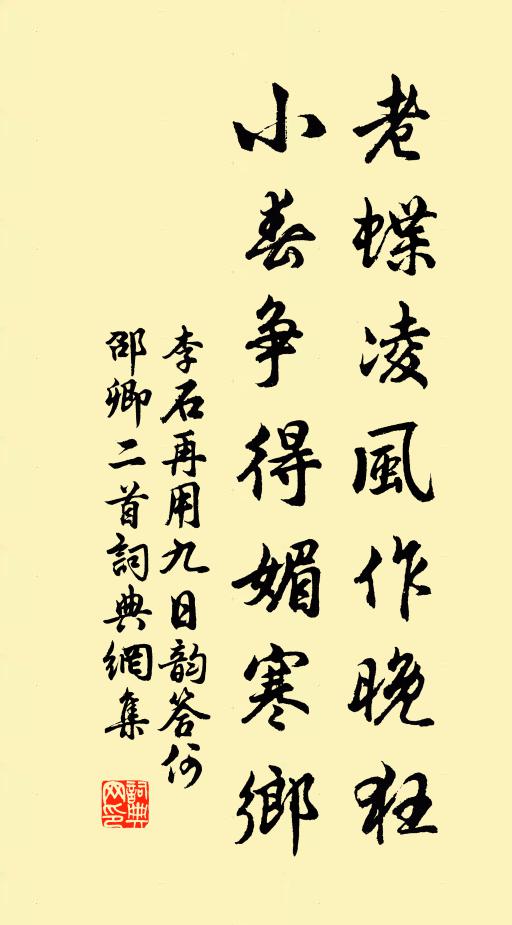 老蝶凌風作晚狂
小春争得媚寒鄉
李石再用九日韵答何
邵卿二首詞典網集
詞典
网印